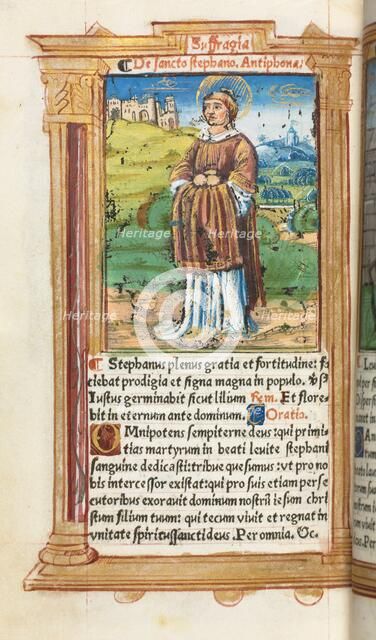 Suffragia
¶ De sancto stephano. Antiphona:
¶ Stephanus plenus gratia et fortitudine: fa
ciebat prodigia et signa magna in populo. ℣
Iustus germinabit sicut lilium Rem. Et flore
bit in eternum ante dominum. Oratio.
OMnipotens sempiterne deus: qui primi
tias martyrum in beati leuite stephani
sanguine dedicasti: tribue quesumus: vt pro no
bis intercessor existat: qui pro suis etiam perse
cutoribus exorauit dominum nostrū iesum chri
stum filium tuum: qui tecum viuit et regnat in
vnitate spiritussancti deus. Per omnia. &c.
Heritage
Heritage
Heritage
Heritage